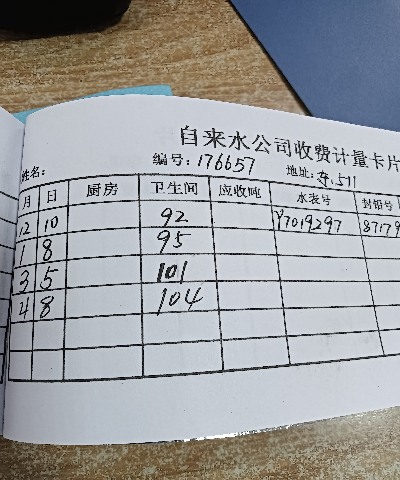 自来水公司收费计量卡片
编号:176657 地址:东.511
姓名:
月 日 厨房 卫生间 应收吨 水表号 封铅号
12 10 92 Y7019297 87179
1 8 95
3 5 101
4 8 104